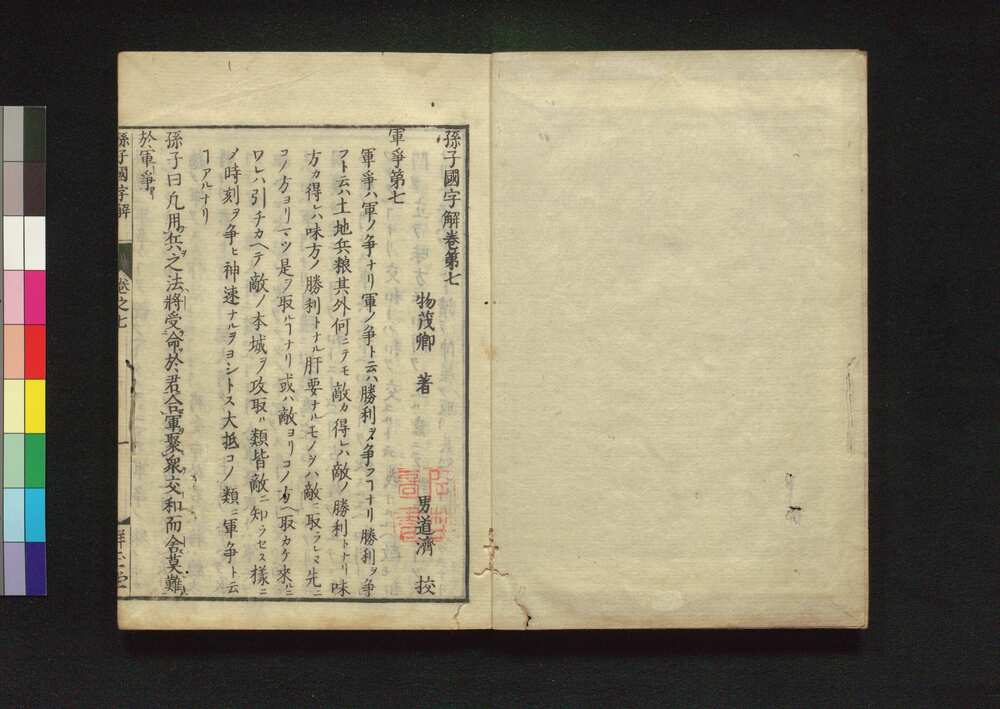 孫子國字解卷第七
物茂卿 著
男道濟 挍
軍爭第七
軍爭ハ軍ノ争ナリ軍ノ争ト云ハ勝利ヲ争フヿナリ勝利ヲ争
フト云ハ土地兵粮其外何ニテモ敵カ得レハ敵ノ勝利トナリ味
方カ得レハ味方ノ勝利トナル肝要ナルモノヲハ敵ニ取ラレマ先ニ
コノ方ヨリマツ是ヲ取ルヿナリ或ハ敵ヨリコノ方ヘ取カケ來ルニ
ワレハ引チカヘテ敵ノ本城ヲ攻取ル類皆敵ニ知ラセス樣ニ
ノ時刻ヲ争ヒ神速ナルヲヨシトス大抵コノ類ニ軍争ト云
ヿアルナリ
孫子曰凡用兵之法將受命於君合軍聚衆交和而舍莫難
於軍爭
孫子國字解
卷之七